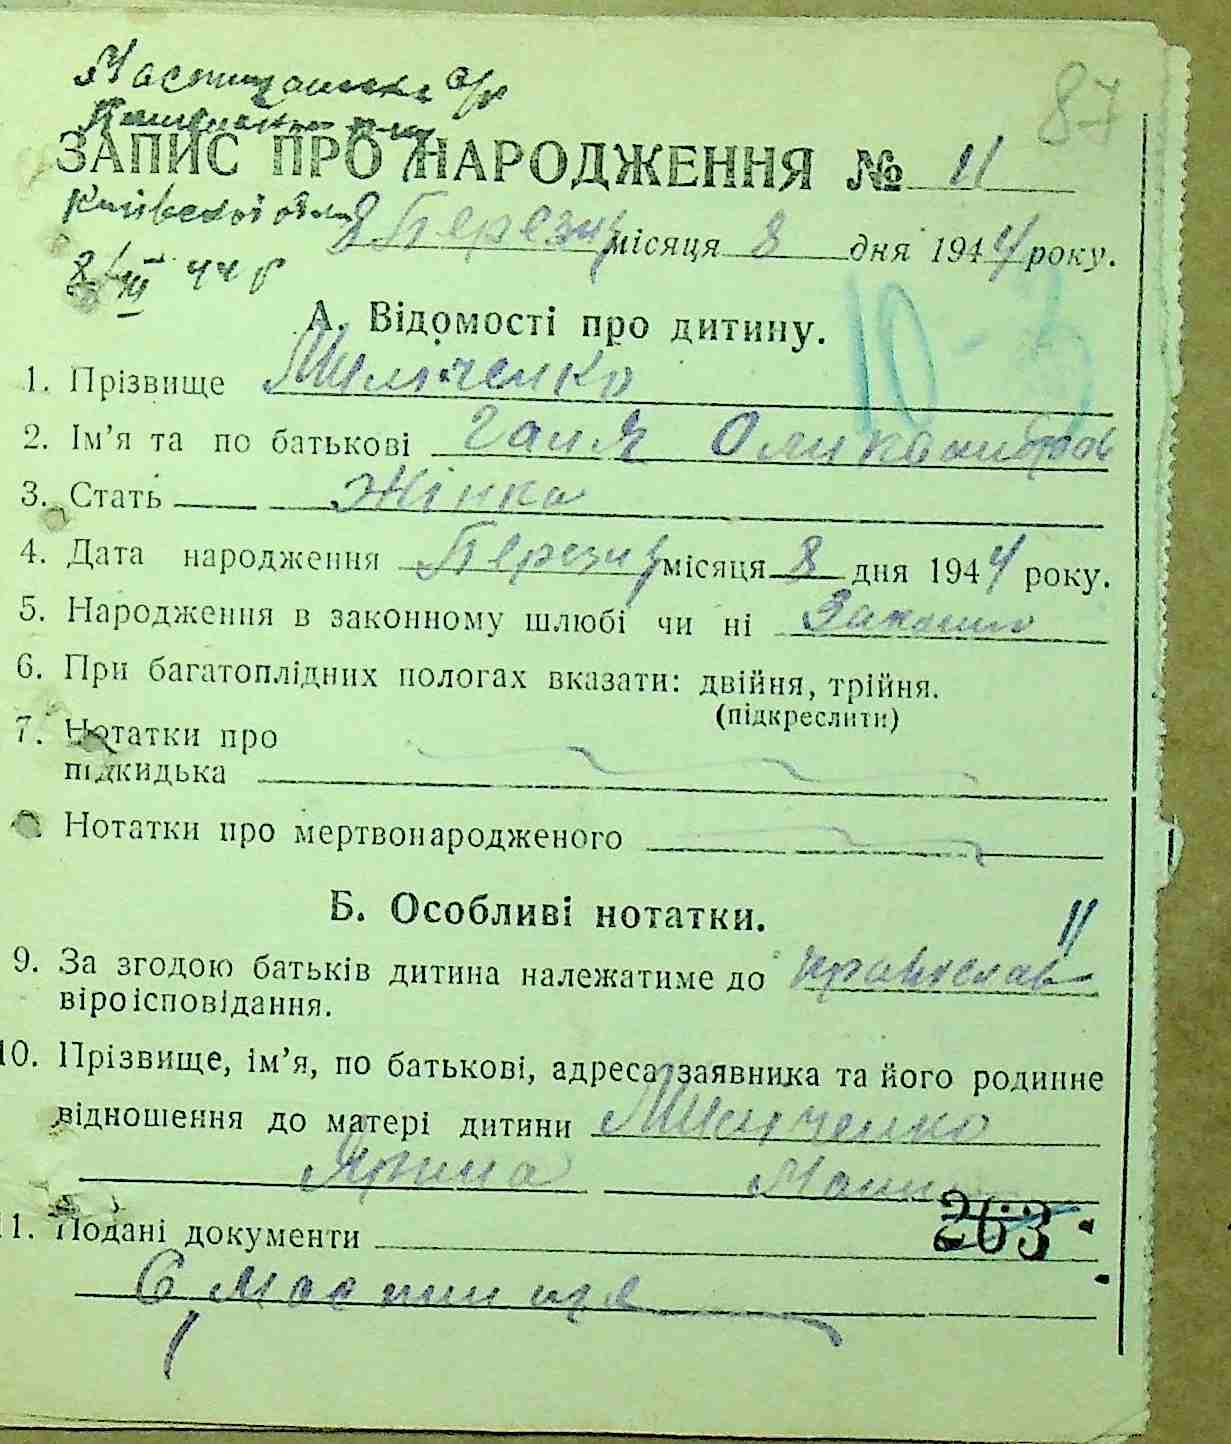 87
ЗАПИС ПРО НАРОДЖЕННЯ № 11
Київської обл
8/III 44 р
8 Березня місяця 8 дня 1944 року.
А. Відомості про дитину.
10-3
1. Прізвище
2. Ім’я та по батькові Галя
3. Стать Жінка
4. Дата народження Березня місяця 8 дня 1944 року.
5. Народження в законному шлюбі чи ні Законно
6. При багатоплідних пологах вказати: двійня, трійня.
(підкреслити)
7. Нотатки про
підкидька
Нотатки про мертвонародженого
Б. Особливі нотатки.
11
9. За згодою батьків дитина належатиме до православ
віроісповідання.
10. Прізвище, ім’я, по батькові, адреса заявника та його родинне
відношення до матері дитини
Ярина
263
11. Подані документи
С. Мостище